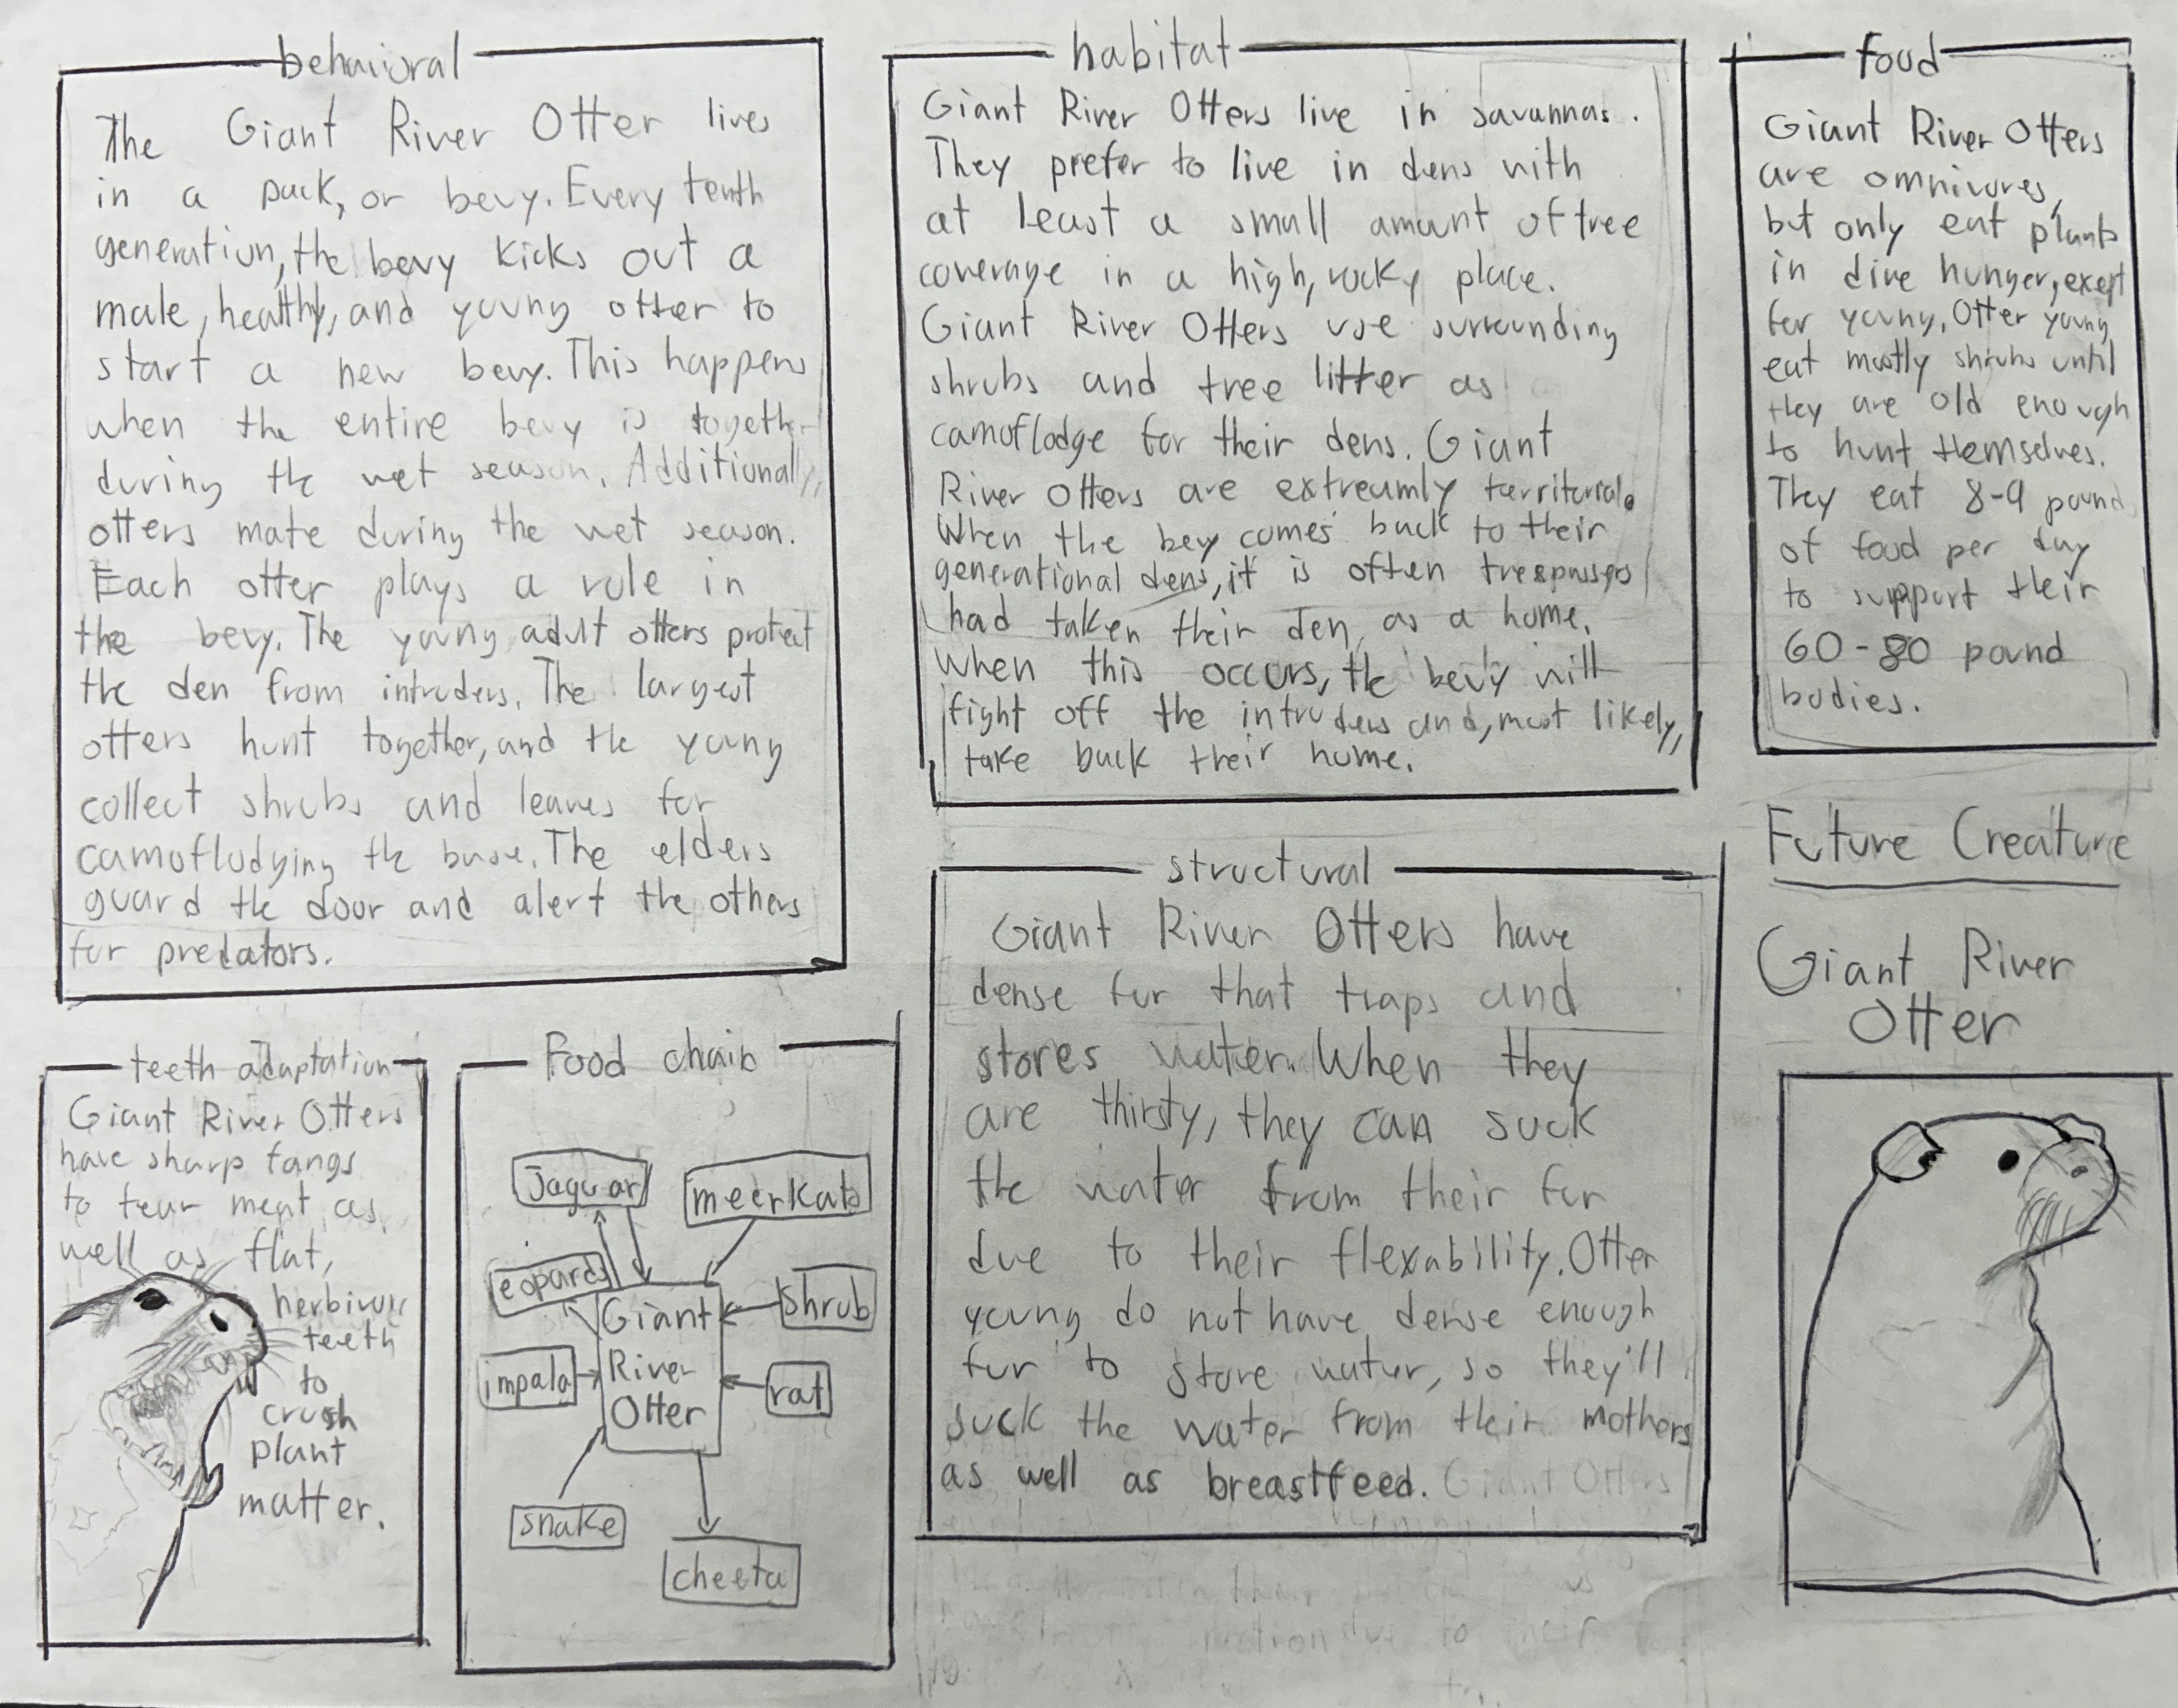 behavioral
The Giant River Otter lives
in a pack, or bevy. Every tenth
generation, the bevy kicks out a
male, healthy, and young otter to
start a new bevy. This happens
when the entire bevy is together
during the wet season. Additionally,
otters mate during the wet season.
Each otter plays a role in
the bevy. The young adult otters protect
the den from intruders. The largest
otters hunt together, and the young
collect shrubs and leaves for
camofludging the base. The elders
guard the door and alert the others
for predators.
habitat
Giant River Otters live in savannas.
They prefer to live in dens with
at least a small amount of tree
coverage in a high, rocky place.
Giant River Otters use surrounding
shrubs and tree litter as
camoflodge for their dens. Giant
River Otters are extreamly territorial.
When the bevy comes back to their
generational dens, it is often trespasses
had taken their den as a home.
When this occurs, the bevy will
fight off the intruders and, most likely,
take back their home.
food
Giant River Otters
are omnivores,
but only eat plants
in dire hunger, exept
for young. Otter young
eat mostly shrubs until
they are old enough
to hunt themselves.
They eat 8-9 pounds
of food per day
to support their
60-80 pound
bodies.
Future Creature
Giant River
Otter
structural
Giant River Otters have
dense fur that traps and
stores water. When they
are thirsty, they can suck
the water from their fur
due to their flexability. Otter
young do not have dense enough
fur to store water, so they'll
suck the water from their mothers
as well as breastfeed. Giant Otters
teeth adaptation
Giant River Otters
have sharp fangs
to tear meat as
well as flat,
herbivore
teeth
to
crush
plant
matter.
Food chain
Jaguar
meerkats
leopards
Giant
River
Otter
shrub
impala
rat
snake
cheeta